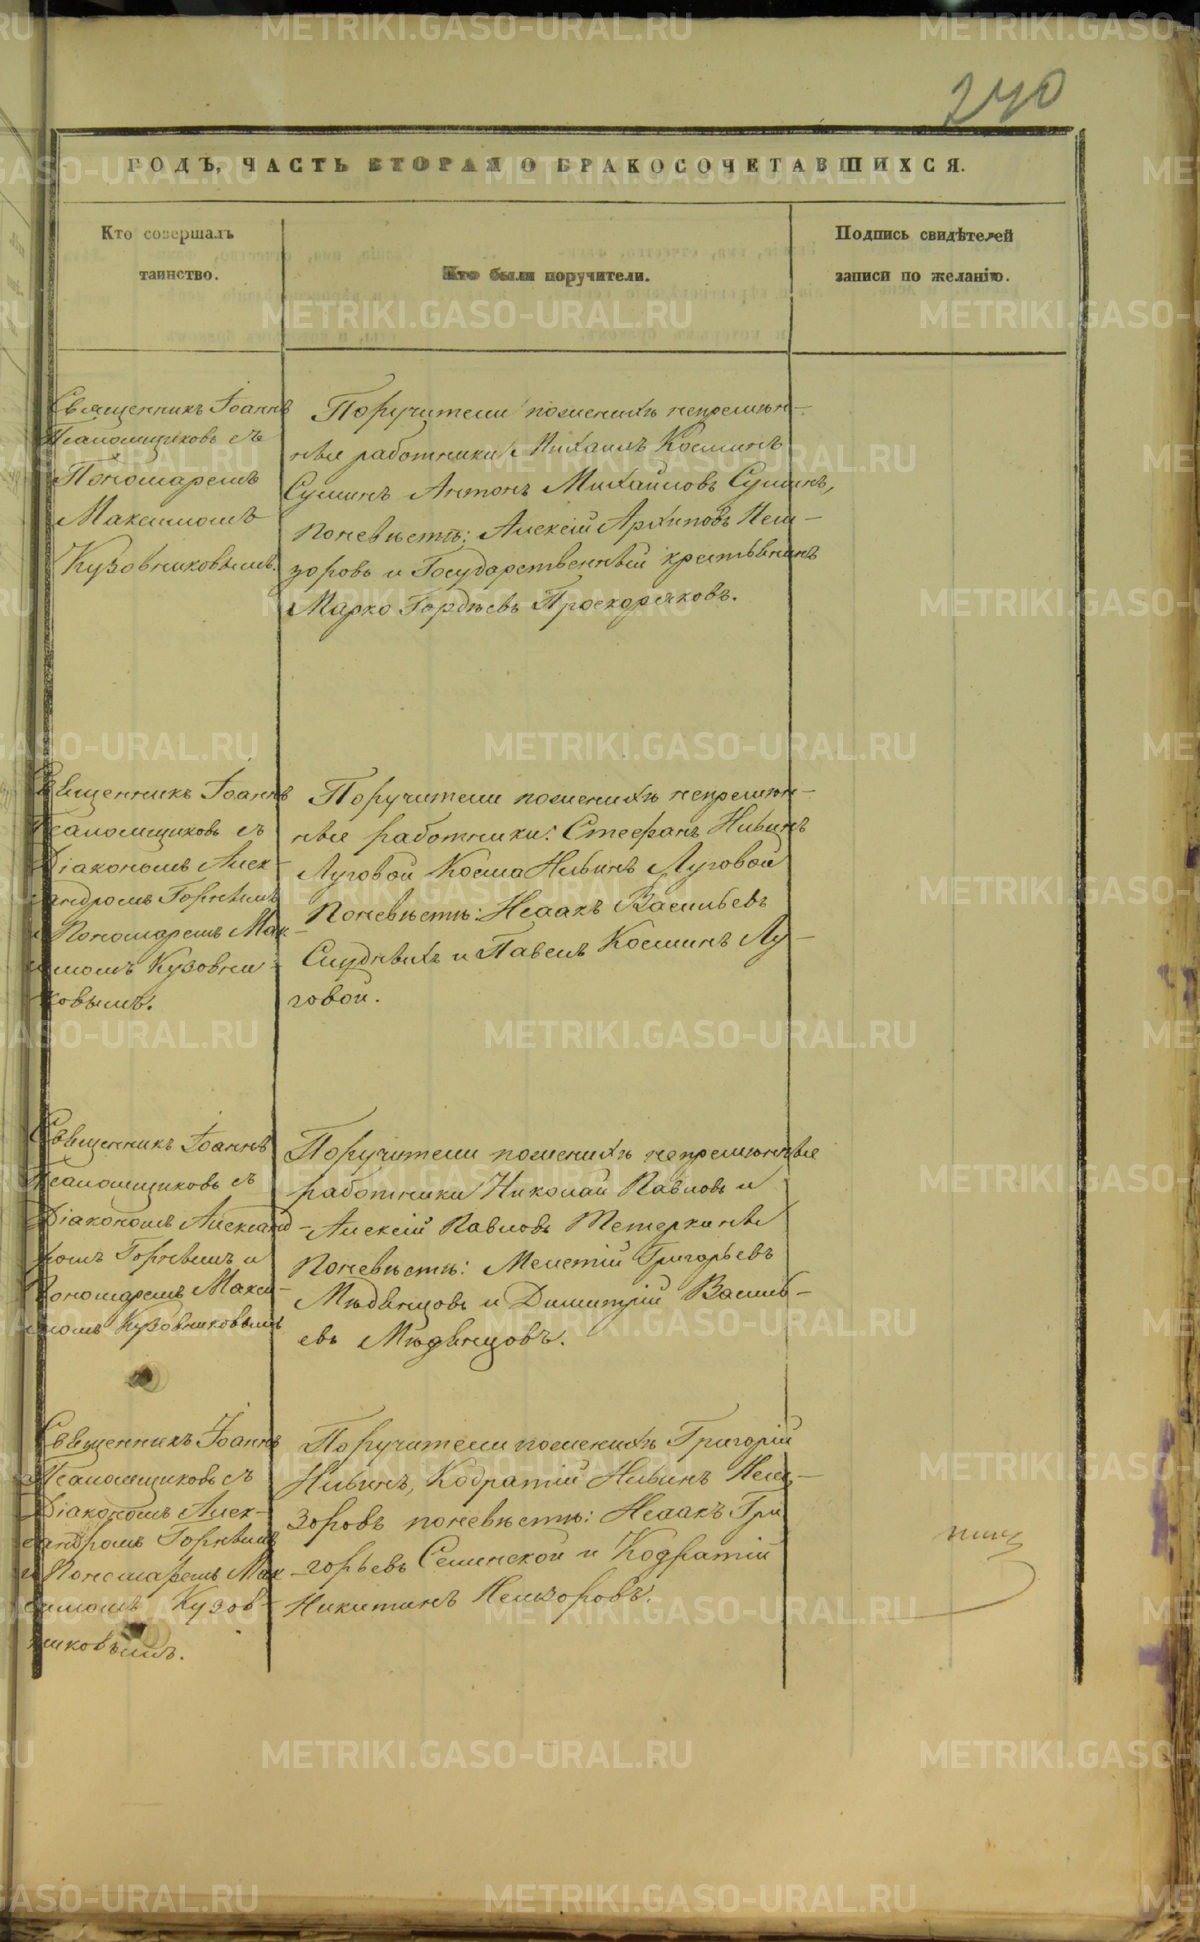 240
РОДЪ, ЧАСТЬ ВТОРАЯ О БРАКОСОЧЕТАВШИХСЯ.
Кто совершалъ
таинство.
Кто были поручители.
Подпись свидѣтелей
записи по желанію.
Священникъ Іоаннъ
Псаломщиковъ съ
Пономаремъ
Максимомъ
Кузовниковымъ.
Поручители по женихѣ непремѣн-
ные работники Михаилъ Косминъ
Суминъ Антонъ Михайловъ Суминъ,
Поневѣстѣ: Алексій Архиповъ Нем-
зоровъ и Государственный крестьянинъ
Марко Гордѣевъ Проскуряковъ.
Священникъ Іоаннъ
Псаломщиковъ съ
Діакономъ Алек-
сандромъ Горнымъ
и Пономаремъ Мак-
симомъ Кузовни-
ковымъ.
Поручители по женихѣ непремѣн-
ные работники: Стефанъ Ильинъ
Луговой Косма Ильинъ Луговой
Поневѣстѣ: Исаакъ Васильевъ
и Павелъ Косминъ Лу-
говой.
Священникъ Іоаннъ
Псаломщиковъ съ
Діакономъ Александ-
ромъ Горнымъ и
Пономаремъ Макси-
момъ Кузовниковымъ
Поручители по женихѣ непремѣнные
работники Николай Павловъ и
Алексій Павловъ Тетеркины
Поневѣстѣ: Мелетій Григорьевъ
Мѣдвенцовъ и Димитрій Василь-
евъ Мѣдвенцовъ.
Священникъ Іоаннъ
Псаломщиковъ съ
Діакономъ Алек-
сандромъ Горнымъ
и Пономаремъ Мак-
симомъ Кузов-
никовымъ.
Поручители по женихѣ Григорій
Ильинъ, Кодратій Ильинъ Нем-
зоровъ поневѣстѣ: Исаакъ Гри
горьевъ Семенской и Кодратій
Никитинъ Немзоровъ.